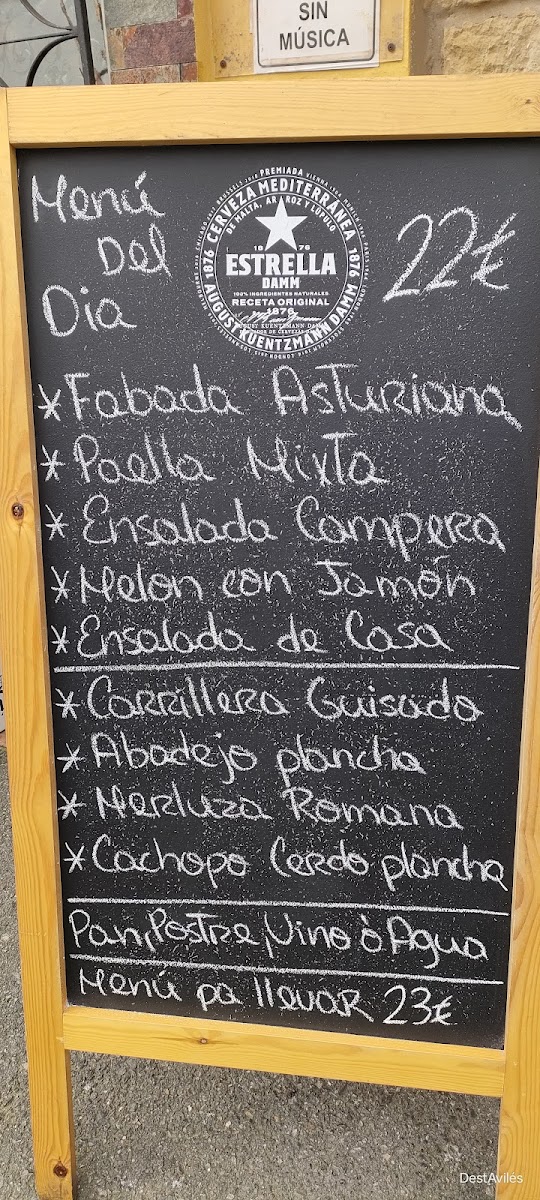 SIN
MÚSICA
Menú
Del
Dia
22€
PREMIADA
CERVEZA MEDITERRÁNEA
DE MALTA, ARROZ Y LÚPULO
1876
1876
1876
ESTRELLA
DAMM
100% INGREDIENTES NATURALES
RECETA ORIGINAL
1876
AUGUST KUENTZMANN DAMM
*Fabada Asturiana
*Paella Mixta
*Ensalada Campera
*Melon con Jamón
*Ensalada de Casa
*Carrillera Guisada
*Abadejo plancha
*Merluza Romana
*Cachopo Cerdo plancha
Pan, Postre, Vino ò Agua
Menú pa llevar 23€
DestAvilés